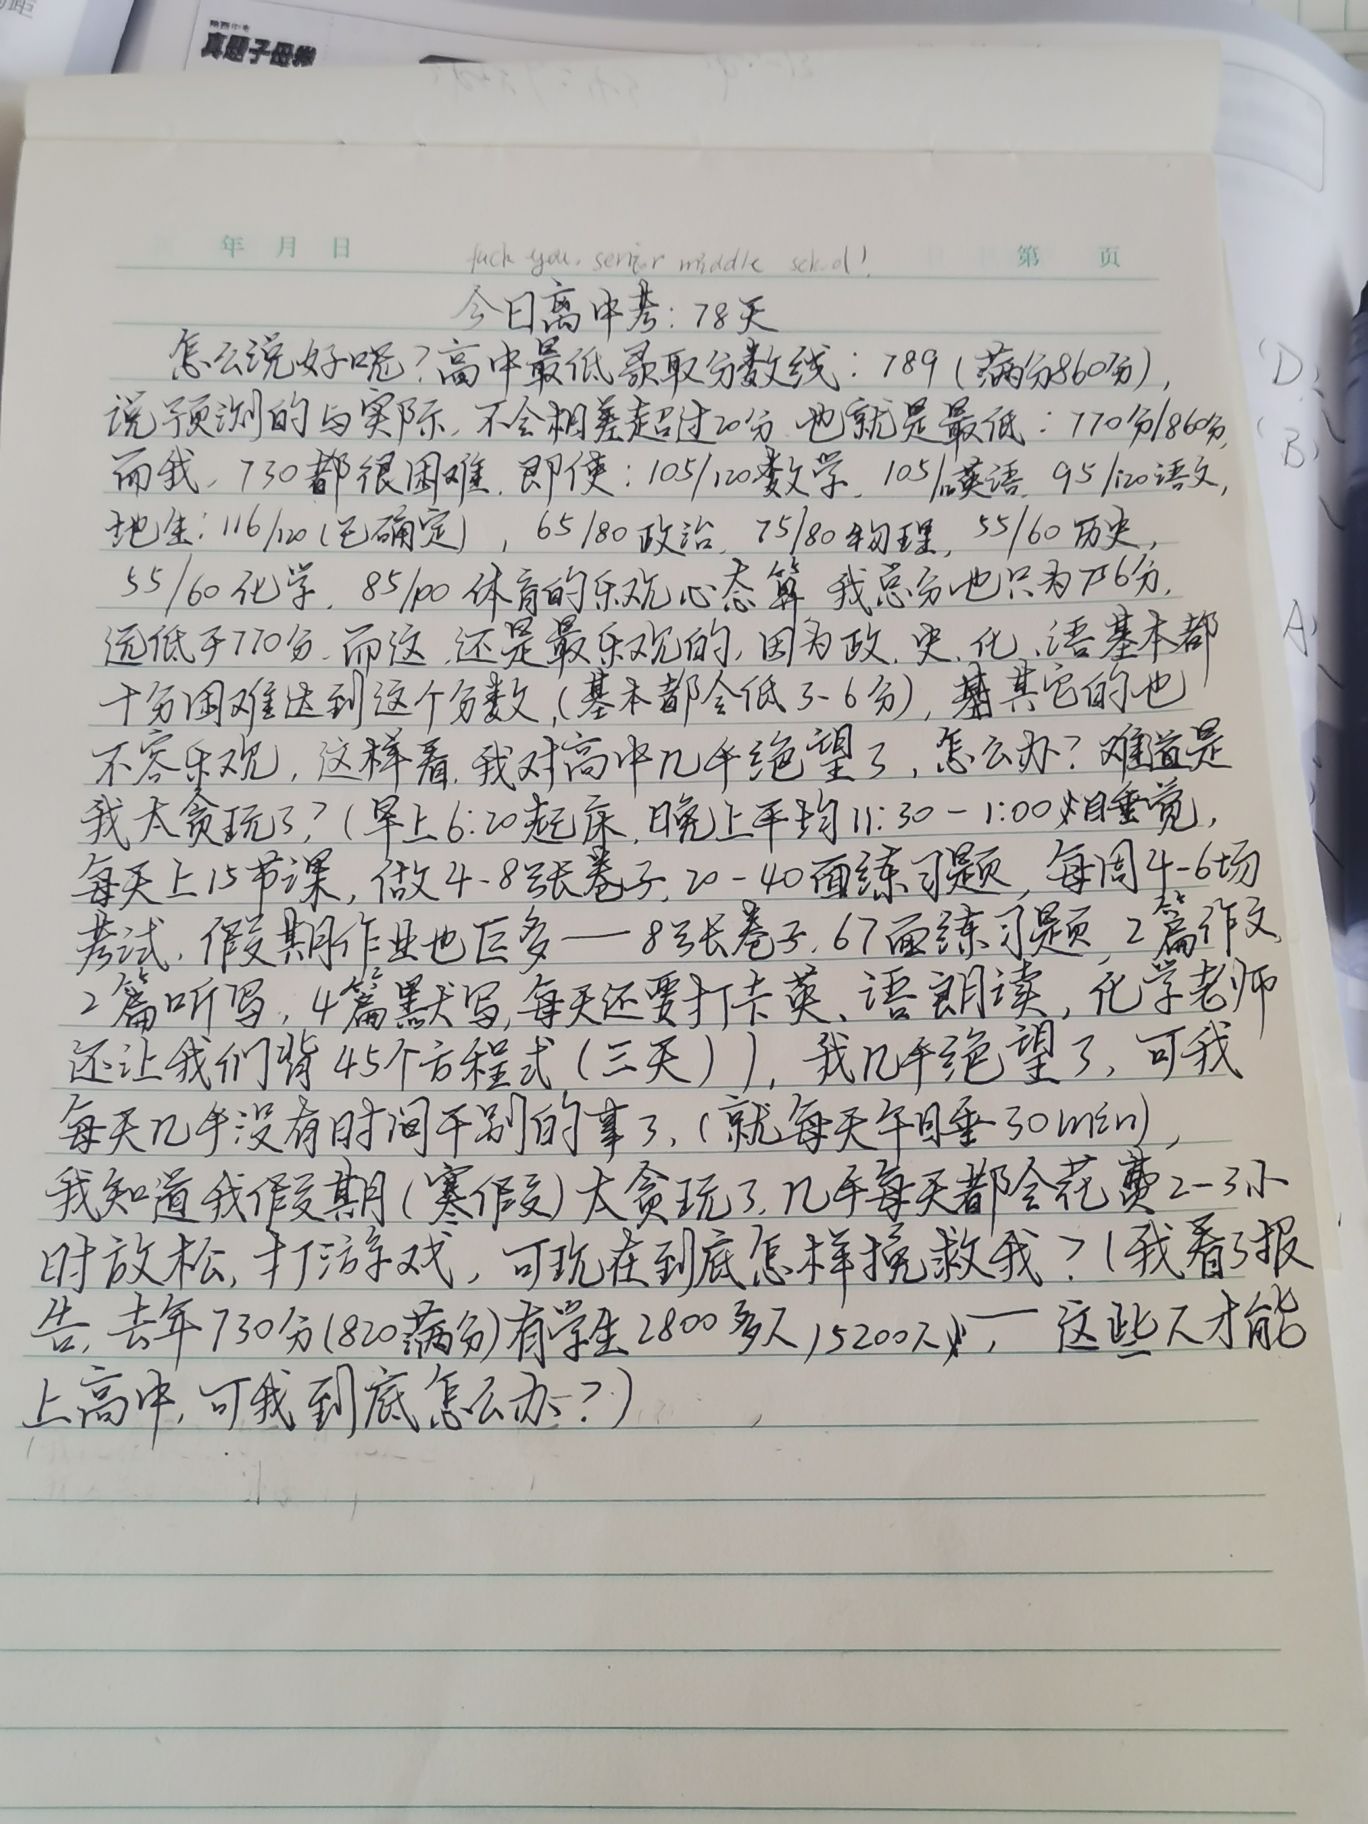 真题子母卷
年 月 日
fuck you, senior middle school!
第 页
今日离中考：78天
怎么说好呢？高中最低录取分数线：789（满分860分），
说预测的与实际，不会相差超过20分，也就是最低：770分/860分，
而我，730都很困难，即使：105/120数学，105/120英语，95/120语文，
地生：116/120（已确定），65/80政治，75/80物理，55/60历史，
55/60化学，85/100体育的乐观心态算，我总分也只为756分，
远低于770分，而这，还是最乐观的，因为政、史、化、语基本都
十分困难达到这个分数，（基本都会低3-6分），其它的也
不容乐观，这样看，我对高中几乎绝望了，怎么办？难道是
我太贪玩了？（早上6:20起床，晚上平均11:30-1:00睡觉，
每天上15节课，做4-8张卷子，20-40面练习题，每周4-6场
考试，假期作业也巨多——8张卷子，67面练习题，2篇作文，
2篇听写，4篇默写，每天还要打卡英、语朗读，化学老师
还让我们背45个方程式（三天）），我几乎绝望了，可我
每天几乎没有时间干别的事了，（就每天午睡30min），
我知道我假期（寒假）太贪玩了，几乎每天都会花费2-3小
时放松，打游戏，可现在到底怎样挽救我？（我看了报
告，去年730分（820满分）有学生2800多人，5200人，——这些人才能
上高中，可我到底怎么办？）
(D)
(B)
A)